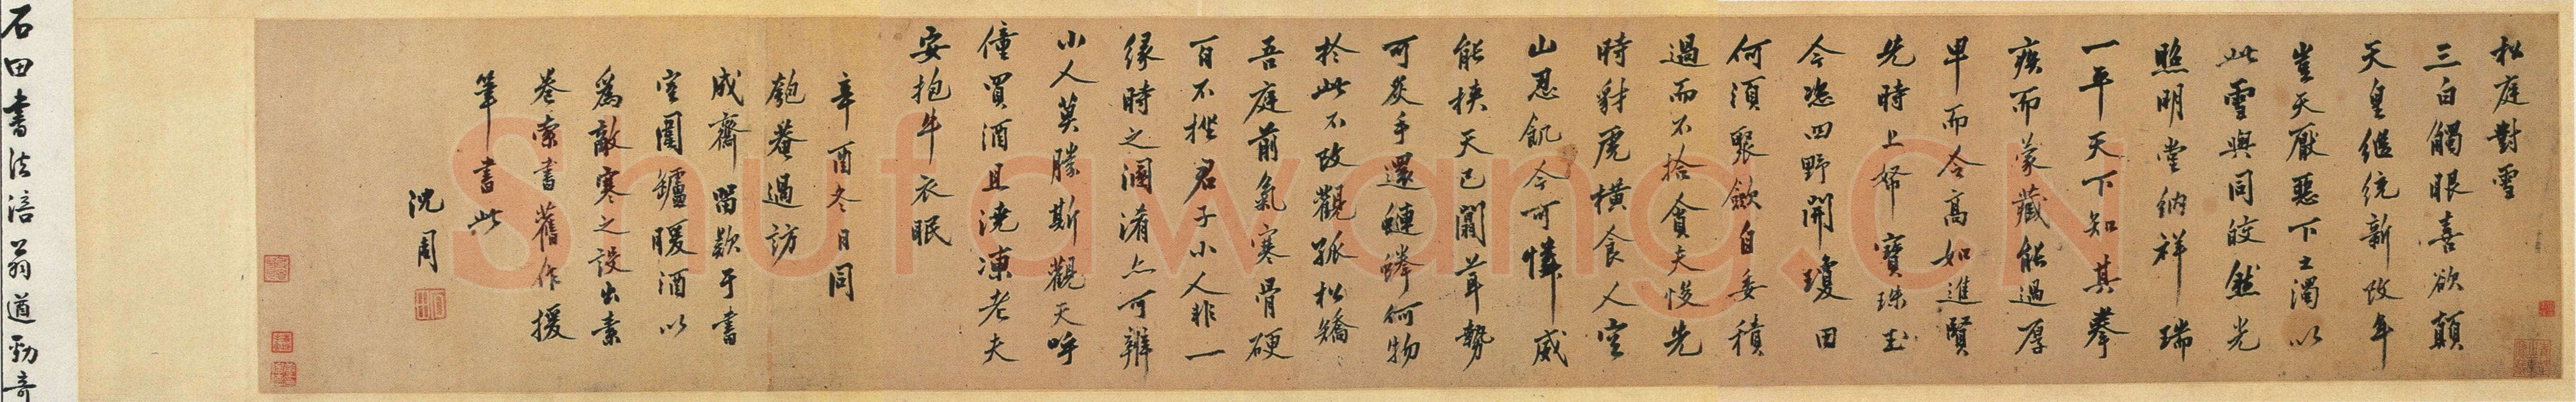 松庭對雪
三白觸眼喜欲顛
天皇繼統新改年
豈天厭惡下土濁以
此雪與同皎然光
照明堂納祥瑞
一平天下知其拳
疾而蒙藏能過厚
卑而令高如進賢
先時上幣寶珠玉
今恣四野開瓊田
何須聚歛自委積
過而不拾貪夫悛先
時豺虎橫食人空
山忍飢今可憐威
能挾天已闒茸勢
可炙手還鏈蜷何物
於此不改觀孤松矯
吾庭前氣寒骨硬
百不摧君子小人非一
緣時之溷淆亦可辨
小人莫勝斯觀天呼
僮買酒且澆凍老夫
安抱牛衣眠
辛酉冬日同
匏菴過訪
成齋留歎于書
室圍罏暖酒以
爲敵寒之設出素
卷索書舊作援
筆書此
沈周
石田書法涪翁遒勁奇
Shufawang.CN